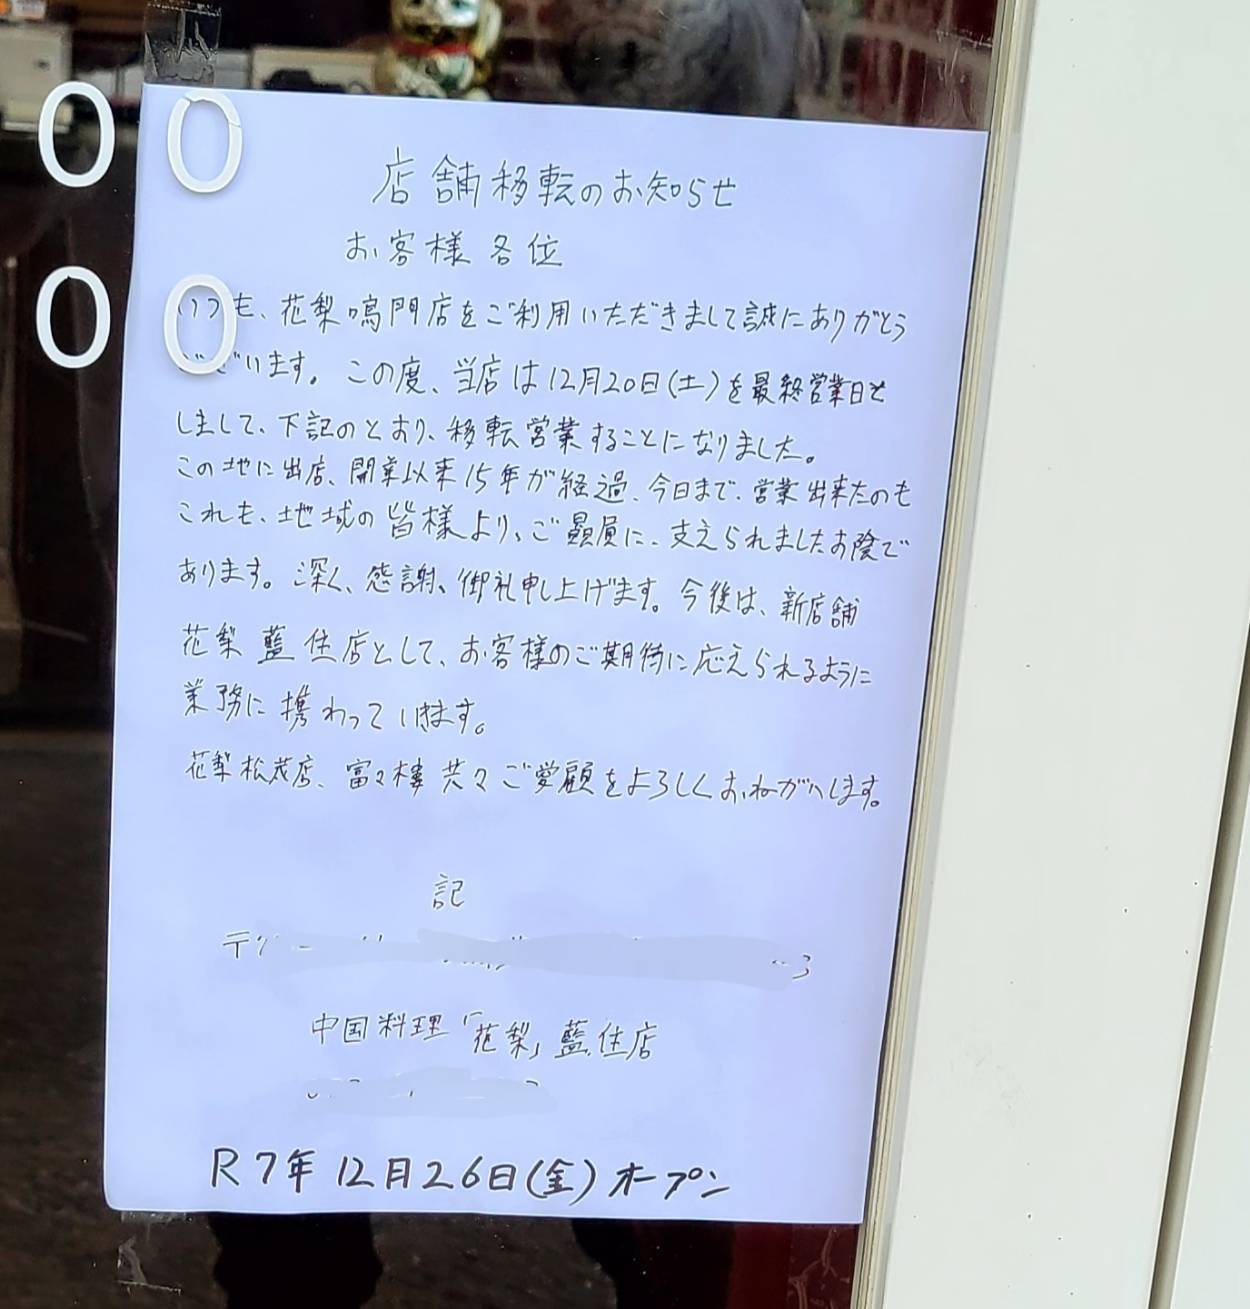 店舗移転のお知らせ
お客様各位
いつも、花梨鳴門店をご利用いただきまして誠にありがとう
ございます。この度、当店は12月20日(土)を最終営業日と
しまして、下記のとおり、移転営業することになりました。
この地に出店、開業以来15年が経過、今日まで、営業出来たのも
これも、地域の皆様より、ご贔屓に、支えられましたお陰で
あります。深く、感謝、御礼申し上げます。今後は、新店舗
花梨藍住店として、お客様のご期待に応えられるように
業務に携わっていきます。
花梨松茂店、富々樓共々ご愛顧をよろしくおねがいします。
記
中国料理「花梨」藍住店
R7年12月26日(金)オープン
00
00